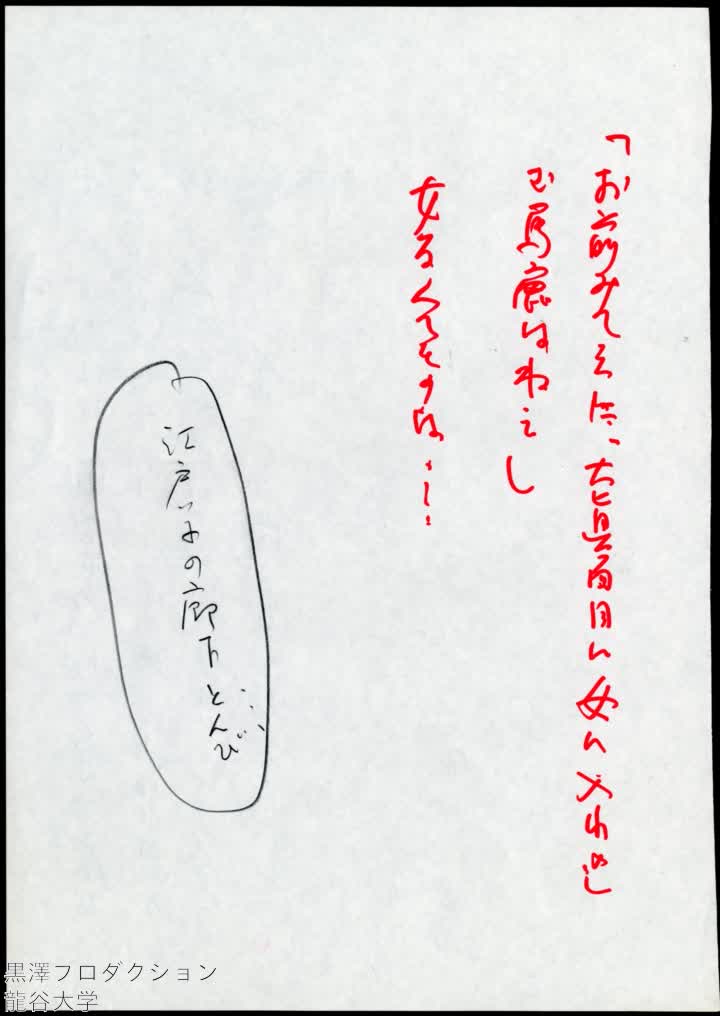 「お前みてえに、大真面目に女に入れ込
む馬鹿はねえし
女なんてものは・・・
江戸ッ子の廊下とんび
黒澤プロダクション
龍谷大学